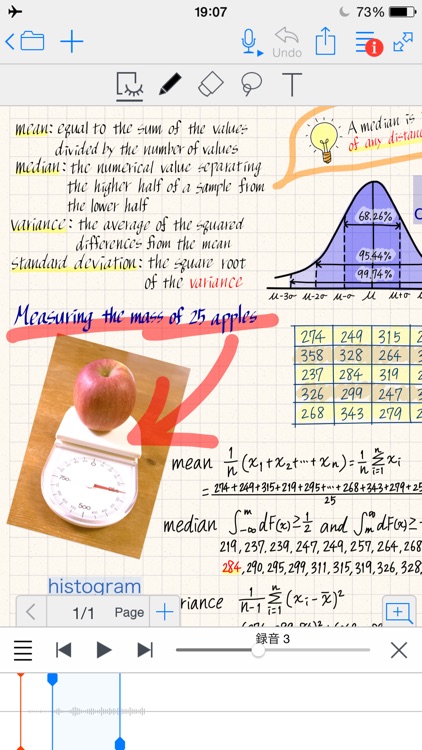 19:07
73%
Undo
T
mean: equal to the sum of the values
divided by the number of values
median: the numerical value separating
the higher half of a sample from
the lower half
variance: the average of the squared
differences from the mean
standard deviation: the square root
of the variance
A median is
of any distan
68.26%
95.44%
99.74%
μ-3σ μ-2σ μ-σ μ μ+σ
Measuring the mass of 25 apples
274 249 315
358 328 264
237 284 319
326 299 247
268 343 279
mean 1/n (x₁+x₂+⋯+xₙ)=1/n Σ xᵢ
= 274+249+315+219+295+⋯+268+343+279+25
25
median ∫dF(x)≥1/2 and ∫dF(x)≥
219, 237, 239, 247, 249, 257, 264, 268
284, 290, 295, 299, 311, 315, 319, 326, 328,
histogram
riance 1/n-1 Σ (xᵢ-x̄)²
1/1 Page
録音 3